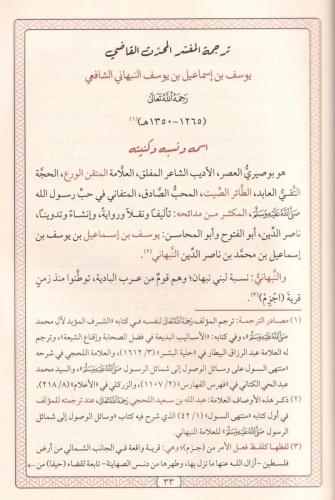 ترجمة المفسّر المحدّث القاضي
يوسف بن إسماعيل بن يوسف النبهاني الشافعي
رَحِمَهُ ٱللَّهُ تَعَالَى
(١٢٦٥-١٣٥٠هـ)(١)
اسمه ونسبه وكنيته
هو بوصيريُّ العصر، الأديب الشاعر المفلق، العلّامة المتقن الورع، الحجّة
التّقيُّ العابد، الطّائر الصّيت، المحبُّ الصّادق، المتفاني في حبِّ رسول الله
صَلَّى ٱللَّهُ عَلَيْهِ وَسَلَّمَ، المكثر من مدائحه: تأليفًا ونقلًا وروايةً، وإنشاءً وتدوينًا،
ناصر الدِّين، أبو الفتوح وأبو المحاسن: يوسف بن إسماعيل بن يوسف بن
إسماعيل بن محمد بن ناصر الدين النَّبهاني(٢).
والنَّبهانيُّ: نسبة لبني نبهان؛ وهم قومٌ من عرب البادية، توطّنوا منذ زمنٍ
قرية (اجْزِم)(٣).
(١) مصادر الترجمة: ترجم المؤلف رَحِمَهُ ٱللَّهُ تَعَالَى لنفسه في كتابه «الشرف المؤبد لآل محمد
صَلَّى ٱللَّهُ عَلَيْهِ وَسَلَّمَ»، وفي كتابه: «الأساليب البديعة في فضل الصحابة وإقناع الشيعة»، وترجم
له العلامة عبد الرزاق البيطار في «حلية البشر» (١٦١٢/٣)، والعلامة اللحجي في شرحه
«منتهى السول على وسائل الوصول إلى شمائل الرسول صَلَّى ٱللَّهُ عَلَيْهِ وَسَلَّمَ»، والسيد محمد
عبد الحي الكتاني في «فهرس الفهارس» (١١٠٧/٢)، والزركلي في «الأعلام» (٢١٨/٨).
(٢) ذكر هذه الأوصاف العلامة: عبد الله بن سعيد اللحجي رَحِمَهُ ٱللَّهُ تَعَالَى عند ترجمته للمؤلف
في أول كتابه «منتهى السول» (٤٢/١) الذي شرح فيه كتاب «وسائل الوصول إلى شمائل
الرسول صَلَّى ٱللَّهُ عَلَيْهِ وَسَلَّمَ» للعلامة النبهاني.
(٣) لفظها كلفظ فعل الأمر من (جـزم)» وهي: قرية واقعة في الجانب الشمالي من أرض
فلسطين -أزال الله عنها ما نزل بها، وطهرها من دنس الصهاينة- تابعة لقضاء (حيفا) من =
٣٣